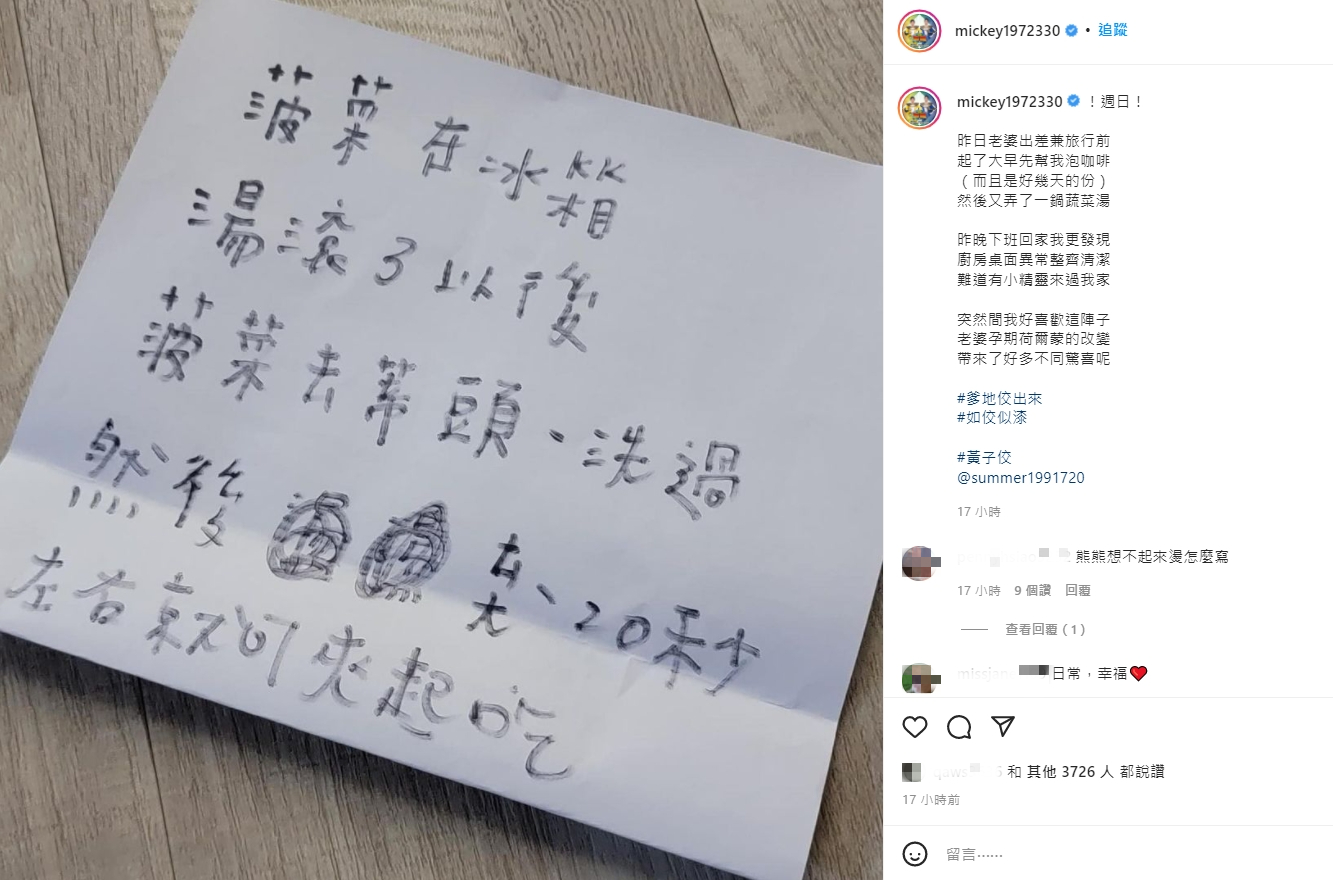 菠菜在冰箱
湯滾了以後
菠菜去蒂頭、洗過
然後
丟、20秒
左右就可夾起吃
mickey1972330 • 追蹤
mickey1972330 ！週日！
昨日老婆出差兼旅行前
起了大早先幫我泡咖啡
（而且是好幾天的份）
然後又弄了一鍋蔬菜湯
昨晚下班回家我更發現
廚房桌面異常整齊清潔
難道有小精靈來過我家
突然間我好喜歡這陣子
老婆孕期荷爾蒙的改變
帶來了好多不同驚喜呢
#爹地佼出來
#如佼似漆
#黃子佼
@summer1991720
17 小時
熊熊想不起來燙怎麼寫
17 小時 9 個讚 回覆
查看回覆 (1)
日常，幸福
和 其他 3726 人 都說讚
17 小時前
留言⋯⋯